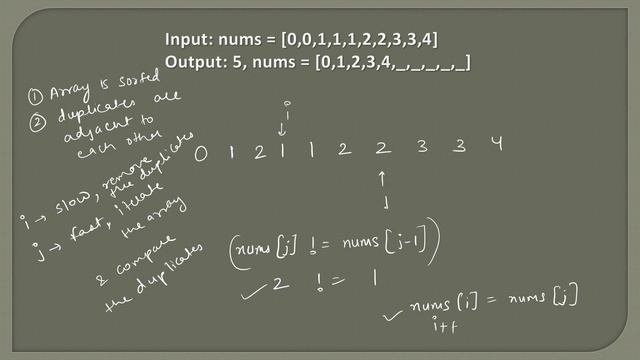 Input: nums = [0,0,1,1,1,2,2,3,3,4]
Output: 5, nums = [0,1,2,3,4,_,_,_,_,_]
① Array is sorted
② duplicates are
adjacent to
each other
i → slow, remove
the duplicates
j → fast, iterate
the array
& compare
the duplicates
i
0 1 2 1 1 2 2 3 3 4
j
(nums[j] != nums[j-1])
✓ 2 != 1
✓ nums[i] = nums[j]
i++